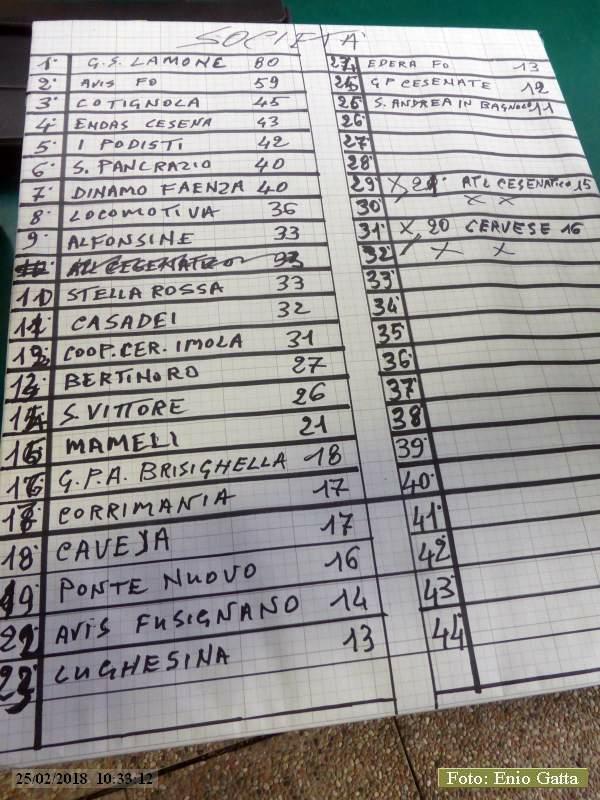 SOCIETA'
1° G.S. LAMONE 80
2° AVIS FO 59
3° COTIGNOLA 45
4° ENDAS CESENA 43
5° I PODISTI 42
6° S. PANCRAZIO 40
7° DINAMO FAENZA 40
8° LOCOMOTIVA 36
9° ALFONSINE 33
STELLA ROSSA 33
CASADEI 32
COOP. CER. IMOLA 31
BERTINORO 27
S. VITTORE 26
MAMELI 21
G.P.A. BRISIGHELLA 18
CORRIMANIA 17
18° CAVEJA 17
19° PONTE NUOVO 16
AVIS FUSIGNANO 14
LUGHESINA 13
EDERA FO 13
GP CESENATE 12
S. ANDREA IN BAGNOLO 11
26°
27°
28°
29° ATL CESENATICO 15
30° X X
31° X, 20 CERVESE 16
32° X X
33°
34°
35°
36°
37°
38°
39°
40°
41°
42°
43°
44°
25/02/2018 10:33:12
Foto: Enio Gatta